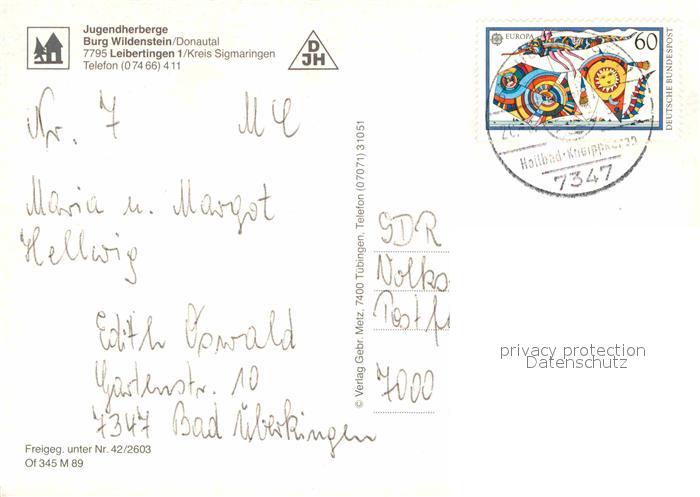 Jugendherberge
Burg Wildenstein/Donautal
7795 Leibertingen 1/Kreis Sigmaringen
Telefon (0 74 66) 4 11
D
JH
EUROPA 60
DEUTSCHE BUNDESPOST
7347
Nr. 7 MC
Maria u. Margot
Hellwig
Edith Oswald
Gartenstr. 10
7347 Bad Überkingen
© Verlag Gebr. Metz, 7400 Tübingen, Telefon (07071) 31051
GDR
Volks
Postfa
7000
privacy protection
Datenschutz
Freigeg. unter Nr. 42/2603
Of 345 M 89